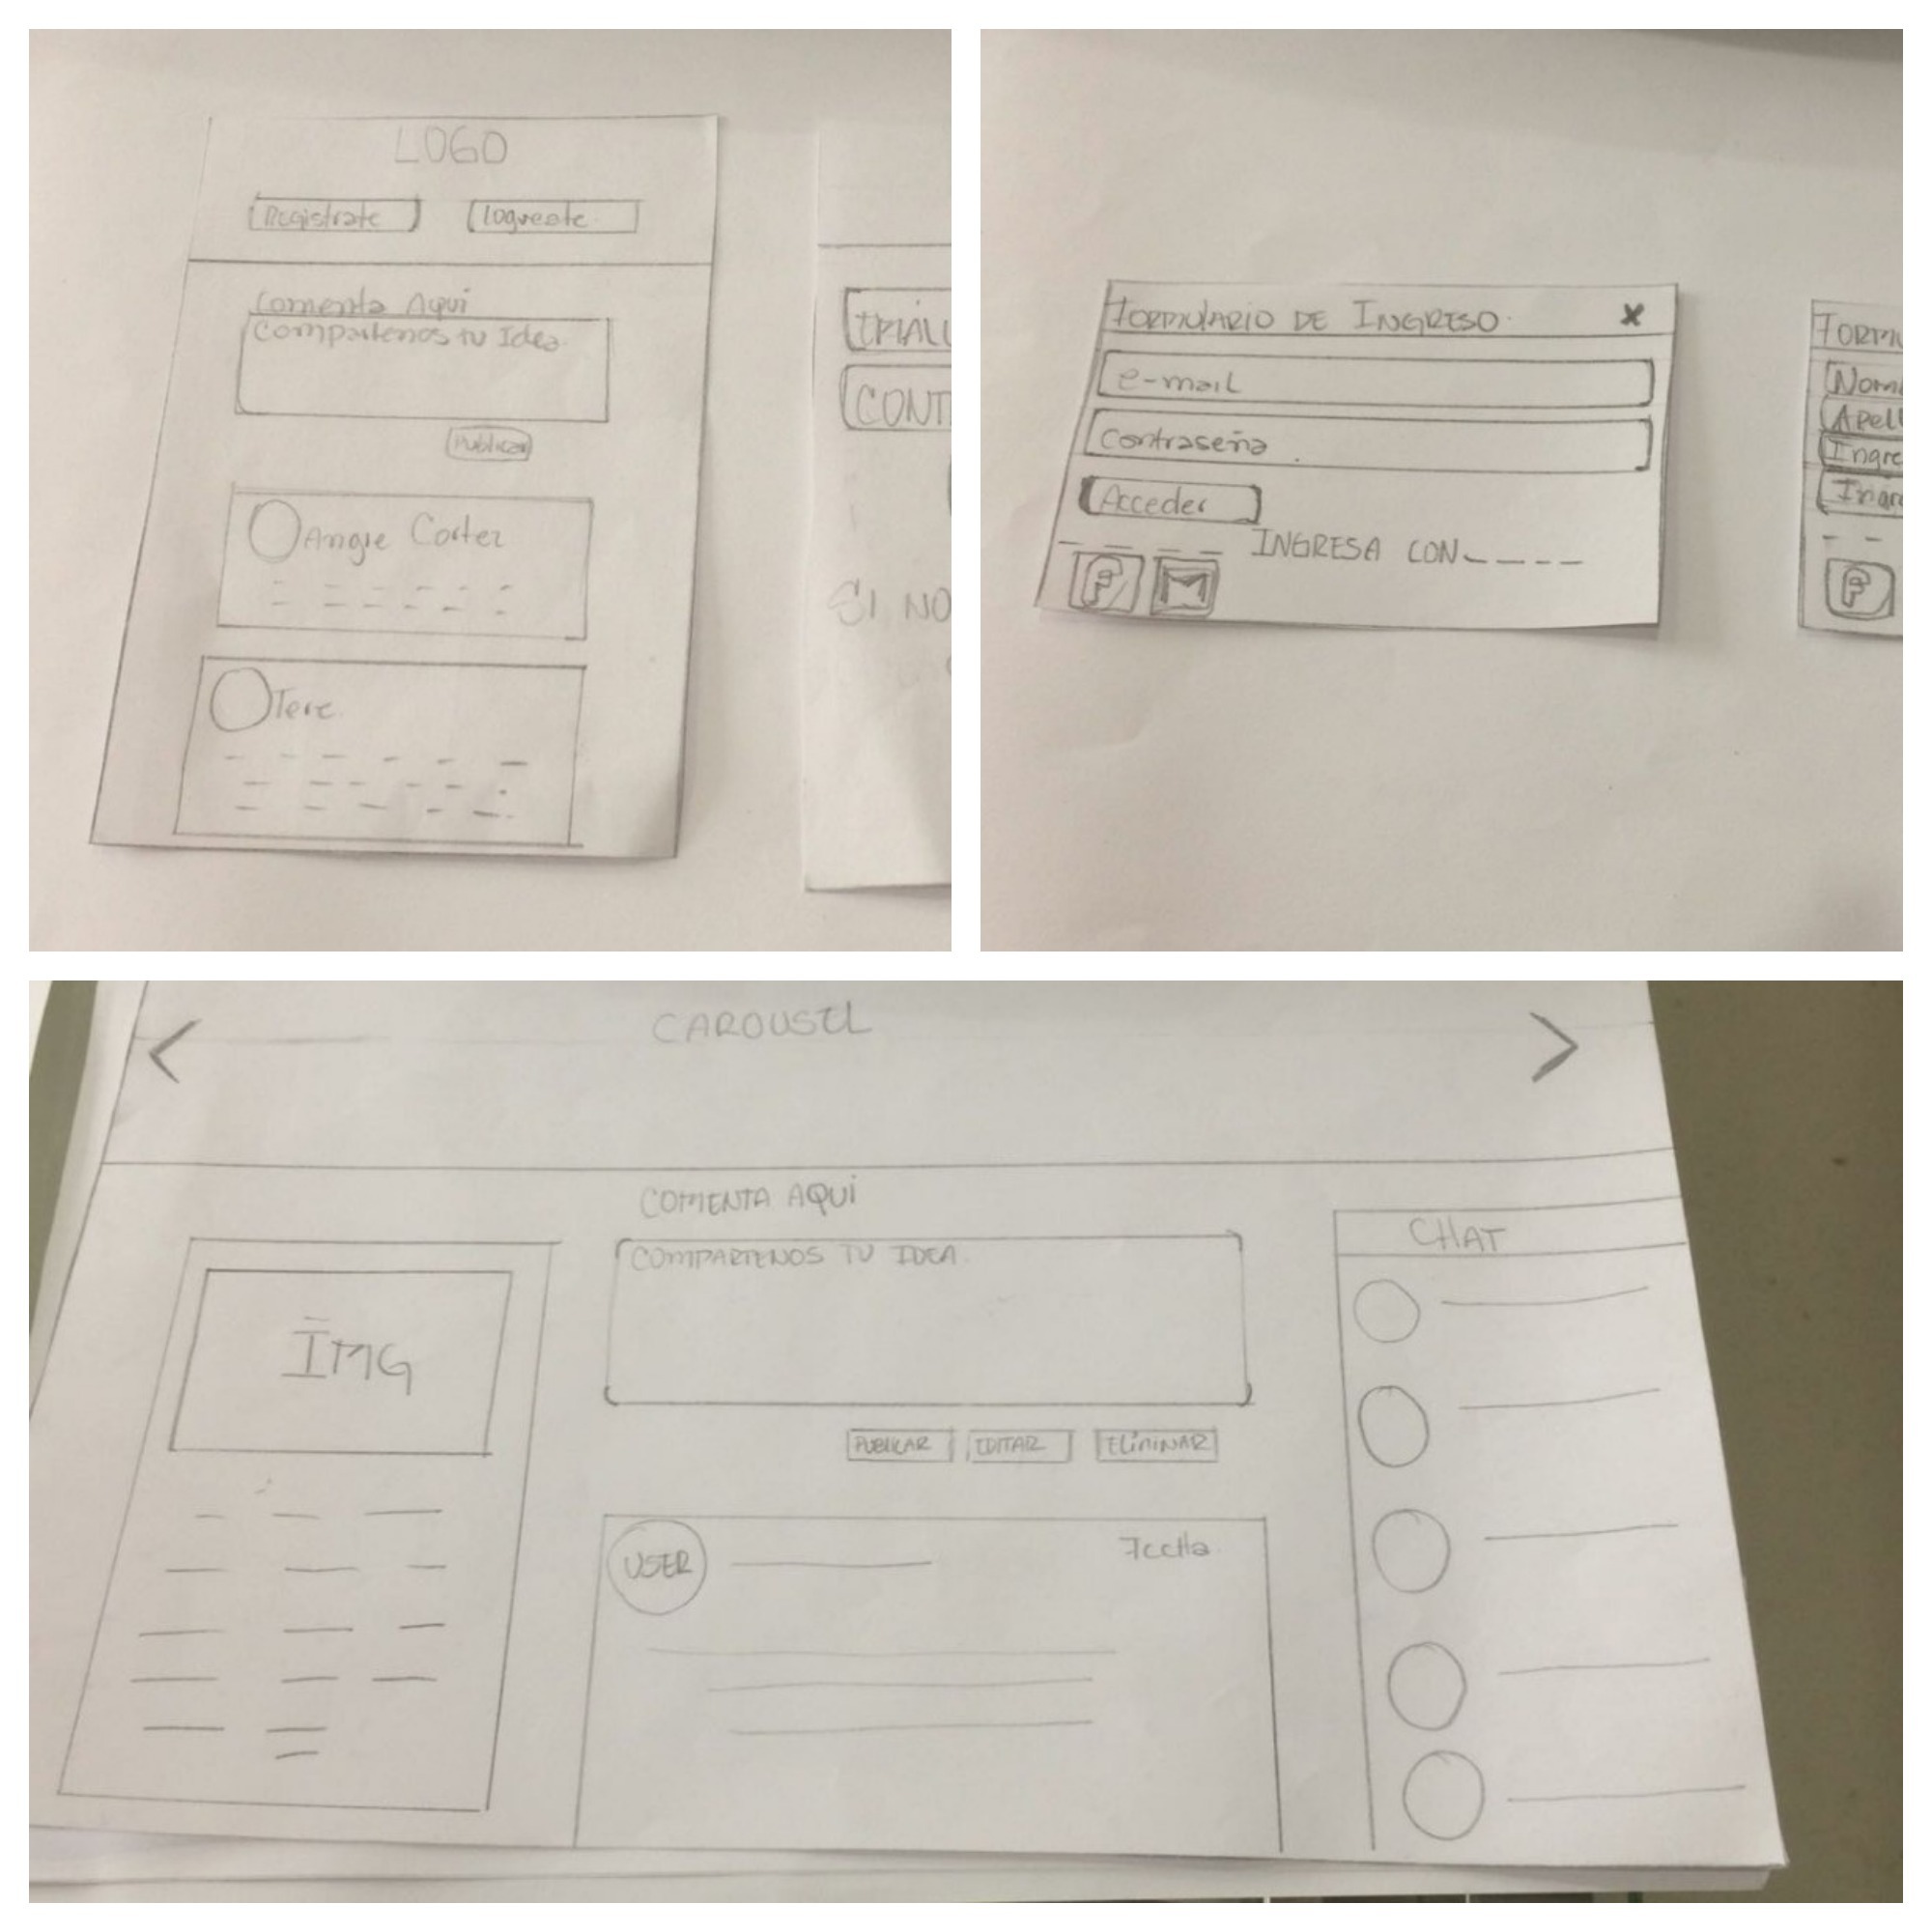 LOGO
Registrate
logueate
Comenta Aquí
Compartenos tu Idea
Publicar
Angie Cortez
Tere
SI NO
FORMULARIO DE INGRESO
x
e-mail
contraseña
Acceder
INGRESA CON
F
M
Ingre
F
CAROUSEL
COMENTA AQUÍ
COMPARTENOS TU IDEA.
PUBLICAR
EDITAR
ELIMINAR
IMG
USER
CHAT